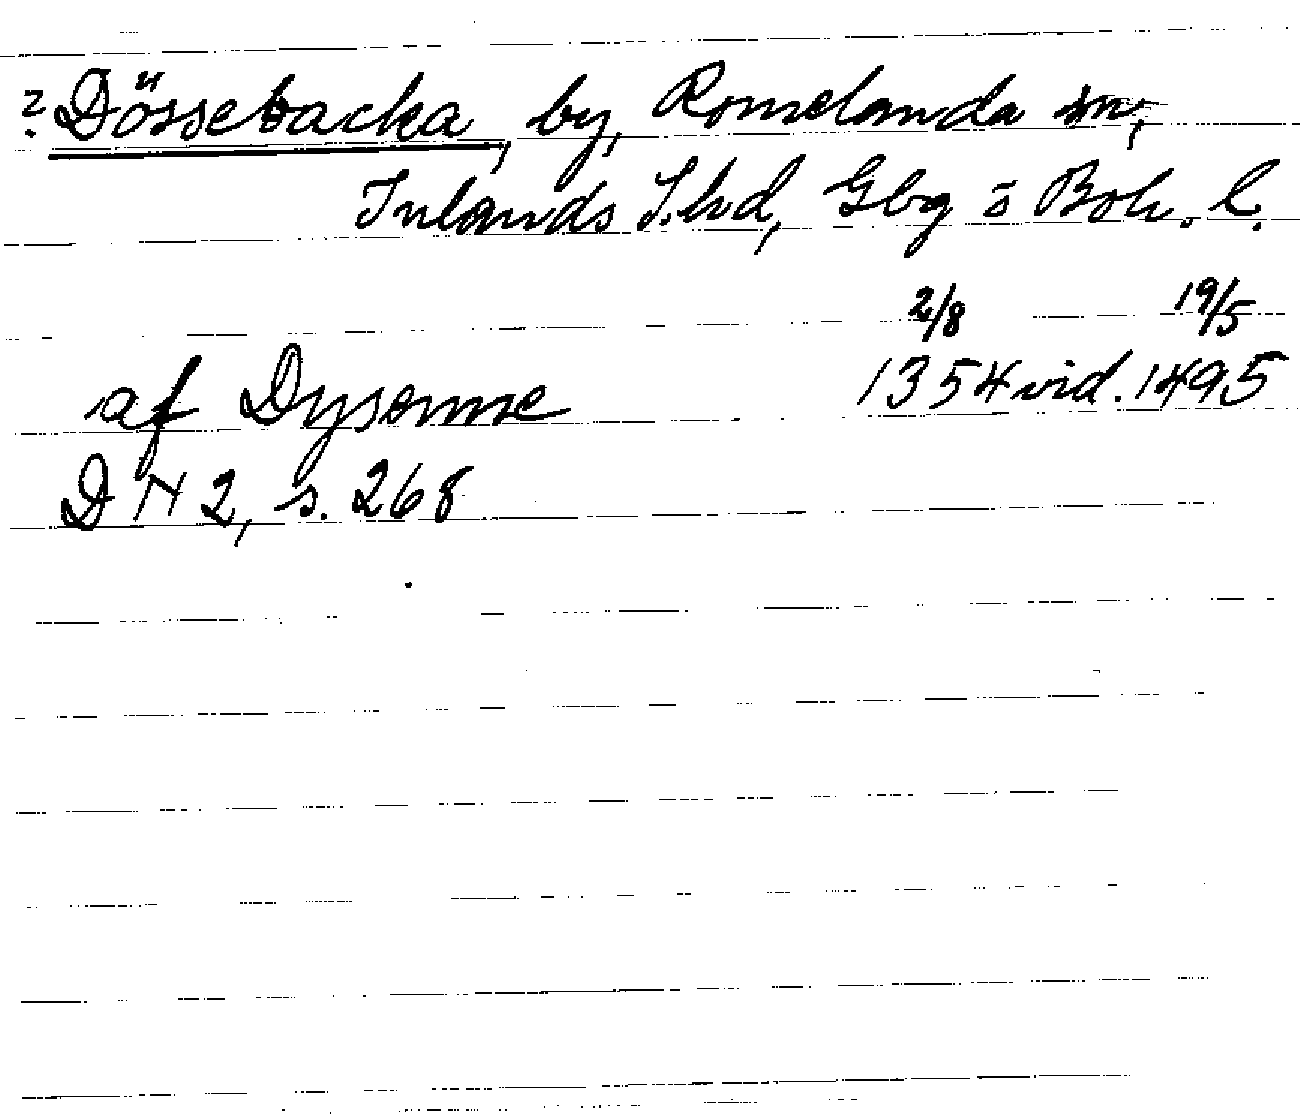 ? Dössebacka, by, Romelanda sn,
Inlands S. hd, Gbg o Boh. l.
2/8 19/5
af Dysomme 1354 vid. 1495
DN 2, s. 268